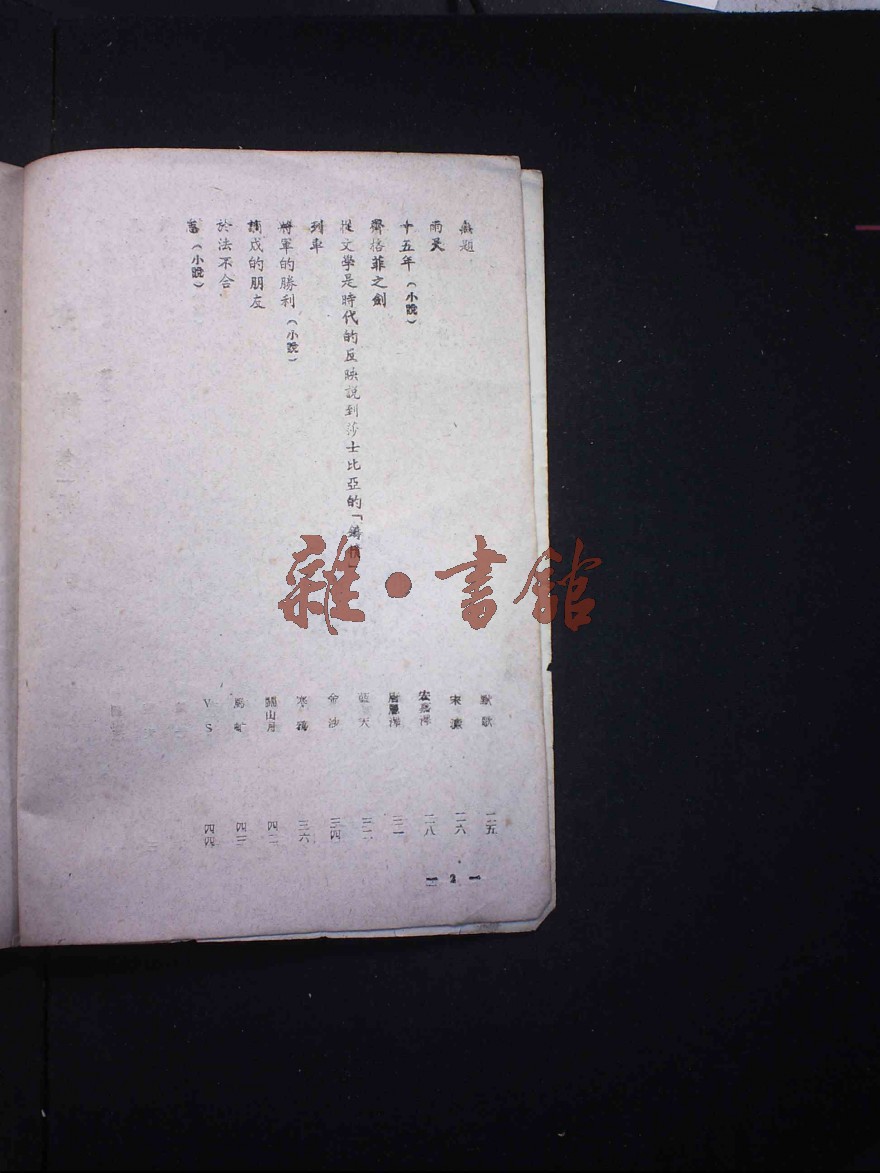 無題 默歌 二五
雨天 宋濂 二六
十五年（小說） 宏嘉澤 二八
齊格菲之劍 三一
從文學是時代的反映說到莎士比亞的「 藍天 三二
列車 金沙 三四
將軍的勝利（小說） 寒 三六
謫戍的朋友 關山月 四二
於法不合 馬 四三
（小說） V S 四四
— 2 —
雜·書館